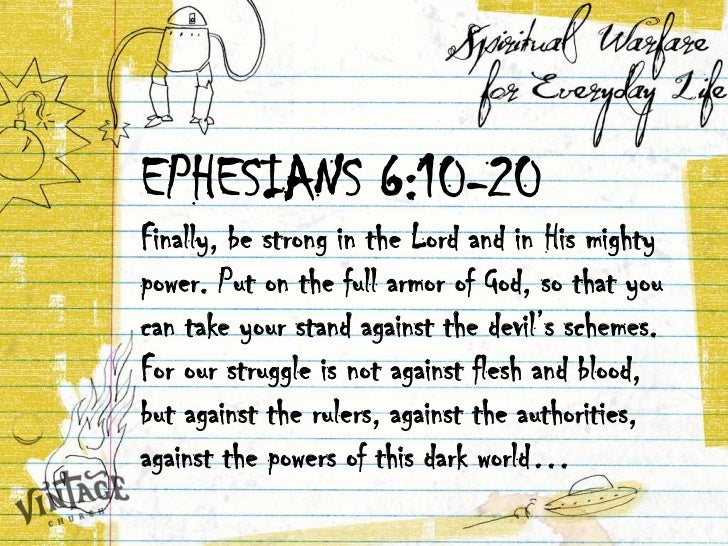 Spiritual Warfare
for Everyday Life
EPHESIANS 6:10-20
Finally, be strong in the Lord and in His mighty
power. Put on the full armor of God, so that you
can take your stand against the devil's schemes.
For our struggle is not against flesh and blood,
but against the rulers, against the authorities,
against the powers of this dark world...
VINTAGE
CHURCH